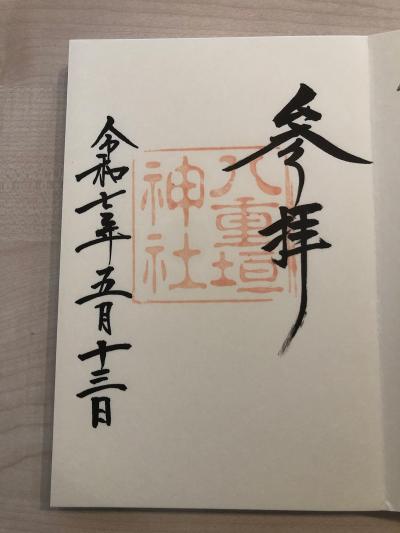 參拝
八重垣
神社
令和七年五月十三日